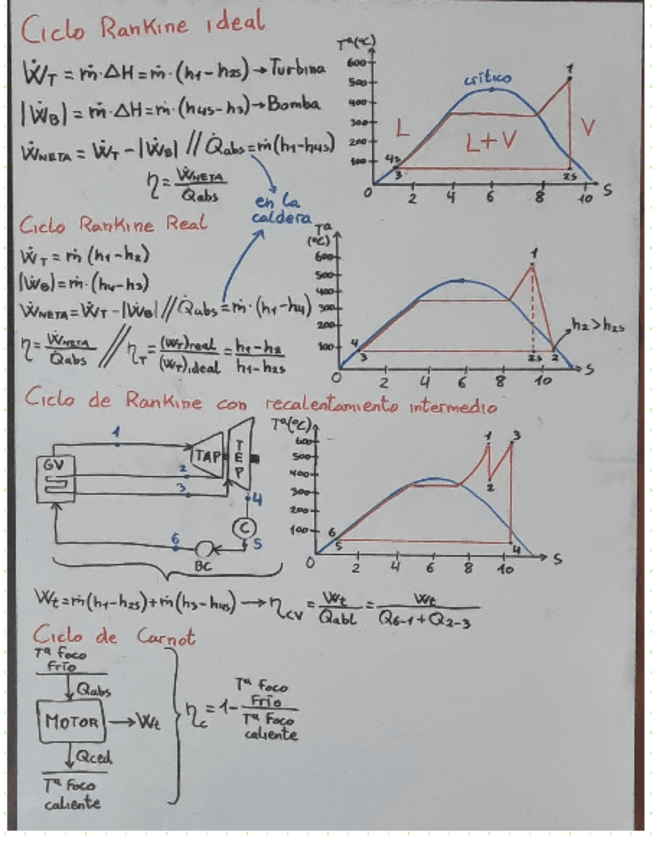 Ciclo Rankine ideal
ẆT = ṁ·ΔH = ṁ·(h1-h2s) → Turbina
|ẆB| = ṁ·ΔH = ṁ·(h4s-h3) → Bomba
ẆNETA = ẆT - |ẆB| // Q̇abs = ṁ(h1-h4s)
η = ẆNETA / Q̇abs
en la
caldera
Tª(ºC)
600
500
400
300
200
100
0
2
4
6
8
10
S
crítico
L
L+V
V
1
2s
3
4s
Ciclo Rankine Real
ẆT = ṁ (h1-h2)
|ẆB| = ṁ·(h4-h3)
ẆNETA = ẆT - |ẆB| // Q̇abs = ṁ·(h1-h4)
η = ẆNETA / Q̇abs // ηT = (WT)real / (WT)ideal = h1-h2 / h1-h2s
Tª
(ºC)
600
500
400
300
200
100
0
2
4
6
8
10
S
1
2s
2
3
4
h2>h2s
Ciclo de Rankine con recalentamiento intermedio
1
GV
TAP
TEP
2
3
4
C
5
6
BC
Tª(ºC)
600
500
400
300
200
100
0
2
4
6
8
10
S
1
2
3
4
5
6
Wt = ṁ(h1-h2s)+ṁ(h3-h4s) → ηcv = Wt / Qabl = Wt / Q6-1+Q2-3
Ciclo de Carnot
Tª Foco
Frío
Qabs
MOTOR → Wt
Qced
Tª Foco
caliente
ηc = 1 - Tª Foco Frío / Tª Foco caliente